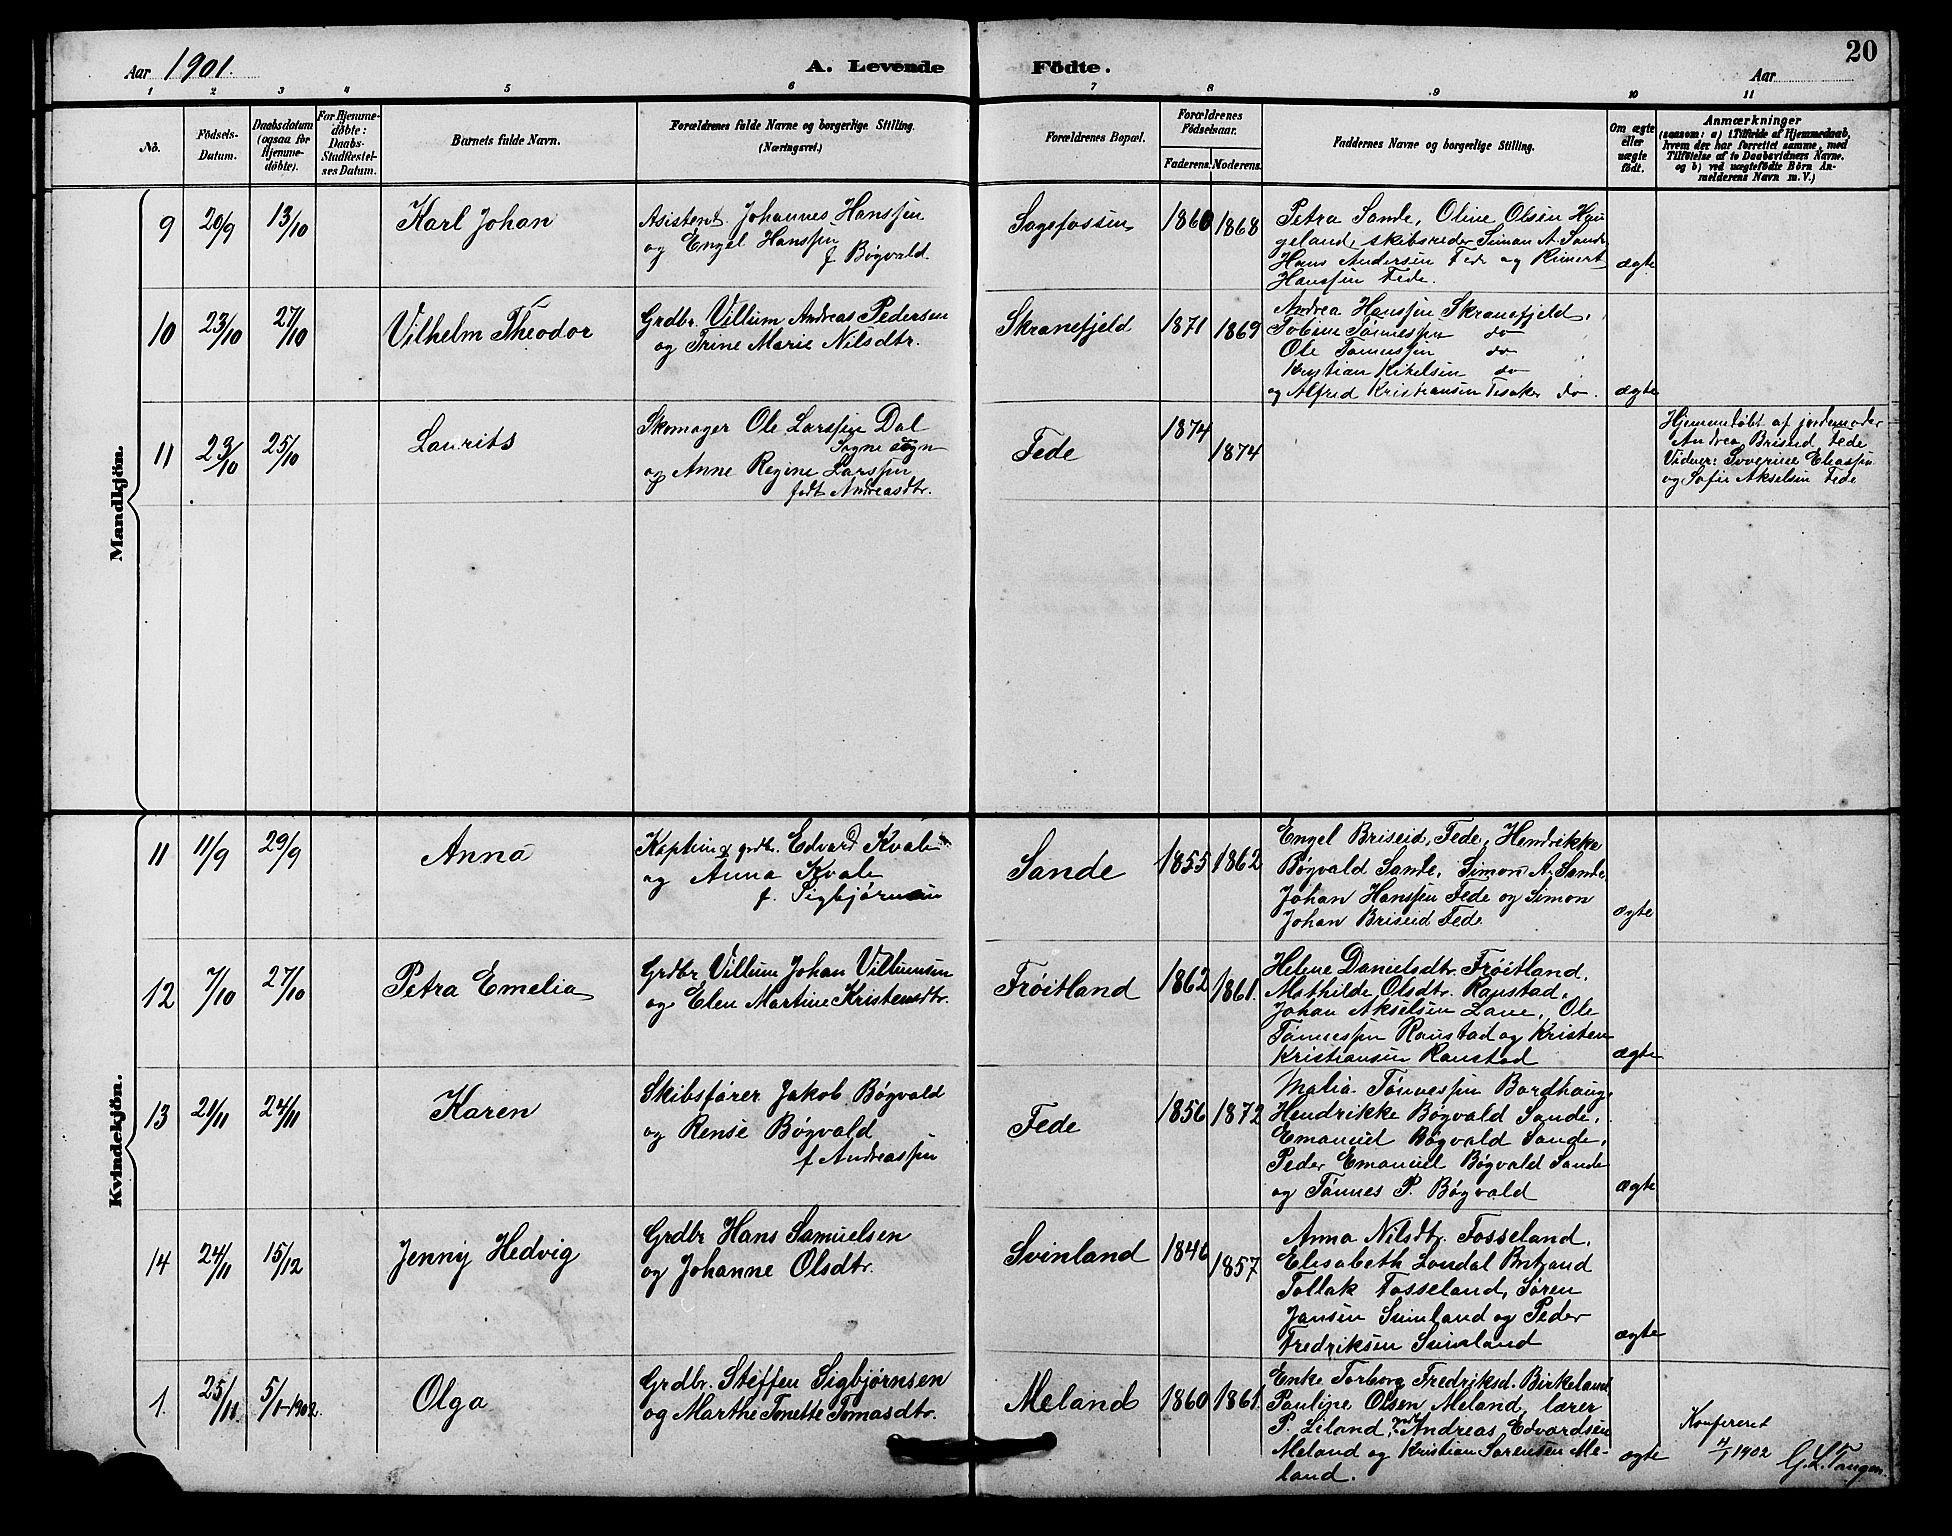 20
Aar 1901. A. Levende Födte. Aar
1 2 3 4 5 6 7 8 9 10 11
No. Födsels-Datum. Daabsdatum (ogsaa for Hjemmedöbte). For Hjemmedöbte: Daabs-Stadfæstelses Datum. Barnets fulde Navn. Forældrenes fulde Navne og borgerlige Stilling. (Næringsvei.) Forældrenes Bopæl. Forældrenes Födselsaar. Faderens. Moderens. Faddernes Navne og borgerlige Stilling. Om ægte eller uægte födt. Anmærkninger (saasom: a) i Tilfælde af Hjemmedaab, hvem der har forrettet samme, med Tilföielse af to Daabsvidners Navne. og b) ved uægtefödte Börn Anmelderens Navn m. V.)
Mandkjön.
9 20/9 13/10 Karl Johan
Asistent Johannes Hanssen
og Engel Hanssen
f Bøgvald.
Sagefossen 1860 1868
Petra Sande, Oline Olsen Hau
geland, skibsreder Simon A. Sande
Hans Andersen Fede og Reinert
Hanssen Fede.
ægte
10 23/10 27/10 Vilhelm Theodor
Grdbr. Villum Andreas Pedersen
og Trine Marie Nilsdtr.
Skranefjeld 1871 1869
Andrea Hanssen Skranefjeld,
Tobine Tønnessen do
Ole Tønnessen do
Kristian do
og Alfred Kristiansen do.
ægte
11 23/10 25/10 Laurits
Skomager Ole Larssen Dal
sogn
og Anne Regine Larssen
født Andreasdtr.
Fede 1874 1874
Hjemmedøbt af jordemoder
Andrea Briseid Fede
Vidner: Severine Eliassen
og Sofie Akselsen Fede
Kvindekjön.
11 11/9 29/9 Anna
Kaptein & grdbr. Edvard Kvale
og Anna Kvale
f. Sigbjørnsen
Sande 1855 1862
Engel Briseid, Fede, Hendrikke
Bøgvald Sande, Simon A. Sande,
Johan Hanssen Fede og Simon
Johan Briseid Fede
ægte
12 7/10 27/10 Petra Emelia
Grdbr Villum Johan Villumsen
og Elen Martine Kristensdtr.
Frøitland 1862 1861.
Helene Danielsdtr. Frøitland,
Mathilde Olsdtr. Raustad,
Johan Akselsen Lave, Ole
Tønnessen Raustad og Kristen
Kristiansen Raustad
ægte
13 21/11 24/11 Karen
Skibsfører Jakob Bøgvald
og Rense Bøgvald
f Andreassen
Fede 1856 1872
Malia Tønnessen Bordhaug,
Hendrikke Bøgvald Sande,
Emanuel Bøgvald Sande,
Peder Emanuel Bøgvald Sande
og Tønnes P. Bøgvald
ægte
14 24/11 15/12 Jenny Hedvig
Grdbr Hans Samuelsen
og Johanne Olsdtr.
Svinland 1846 1857
Anna Nilsdtr. Fosseland,
Elisabeth Londal
Tollak Fosseland, Søren
Jansen Svinland og Peder
Fredriksen Svinland
ægte
1. 25/11 5/1-1902. Olga
Grdbr. Steffen Sigbjørnsen
og Marthe Tonette Tomasdtr.
Meland 1860 1861
Enke Torborg Fredriksd. Birkeland
Pauline Olsen Meland, lærer
P. Liland, Andreas Edvardsen
Meland og Kristian Sørensen Me-
land.
ægte
Konfereret
4/1 1902 G. L. Tangen.